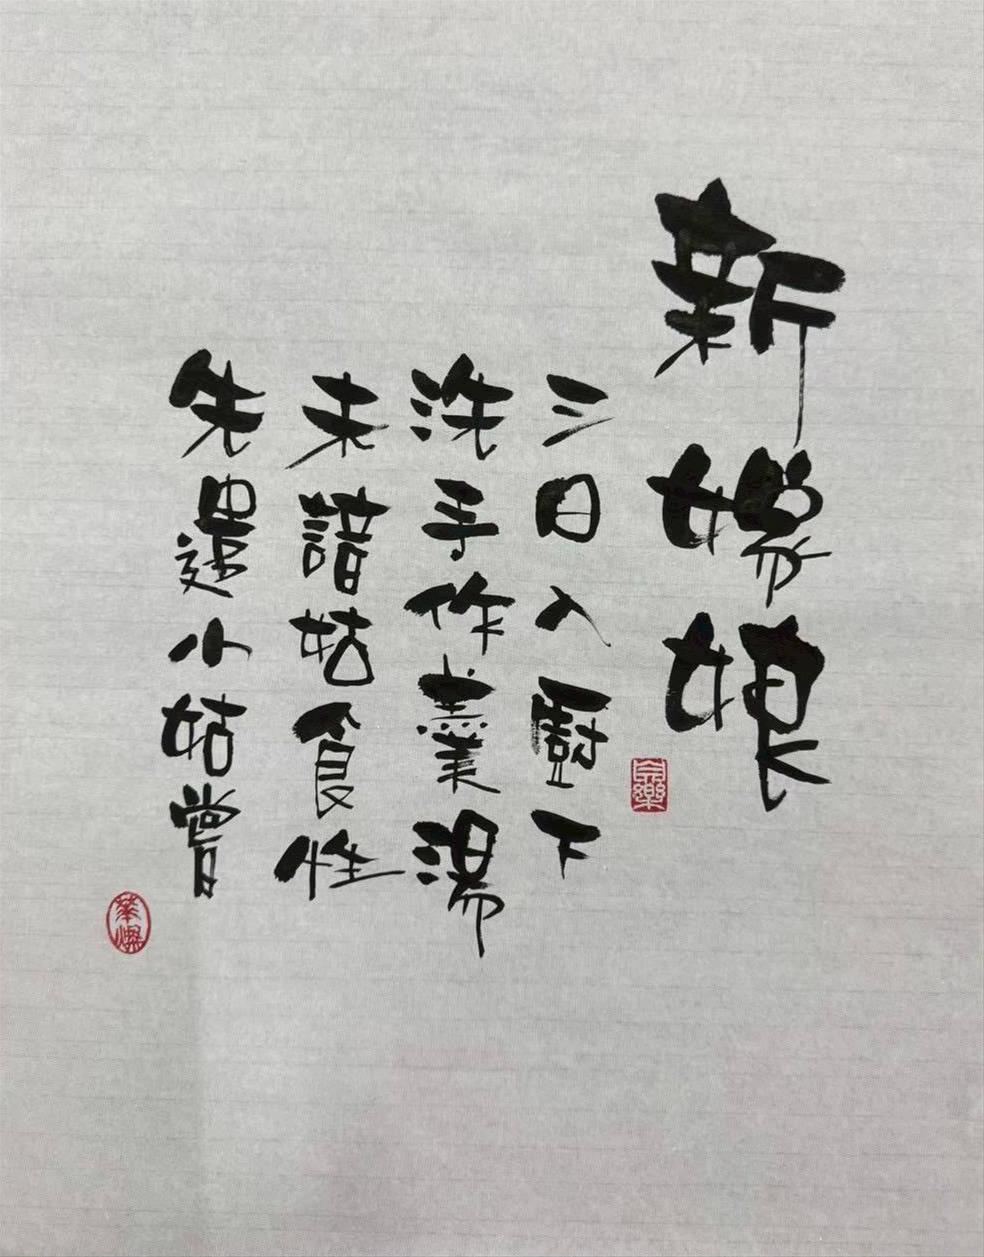 新嫁娘
三日入廚下
洗手作羹湯
未諳姑食性
先遣小姑嘗